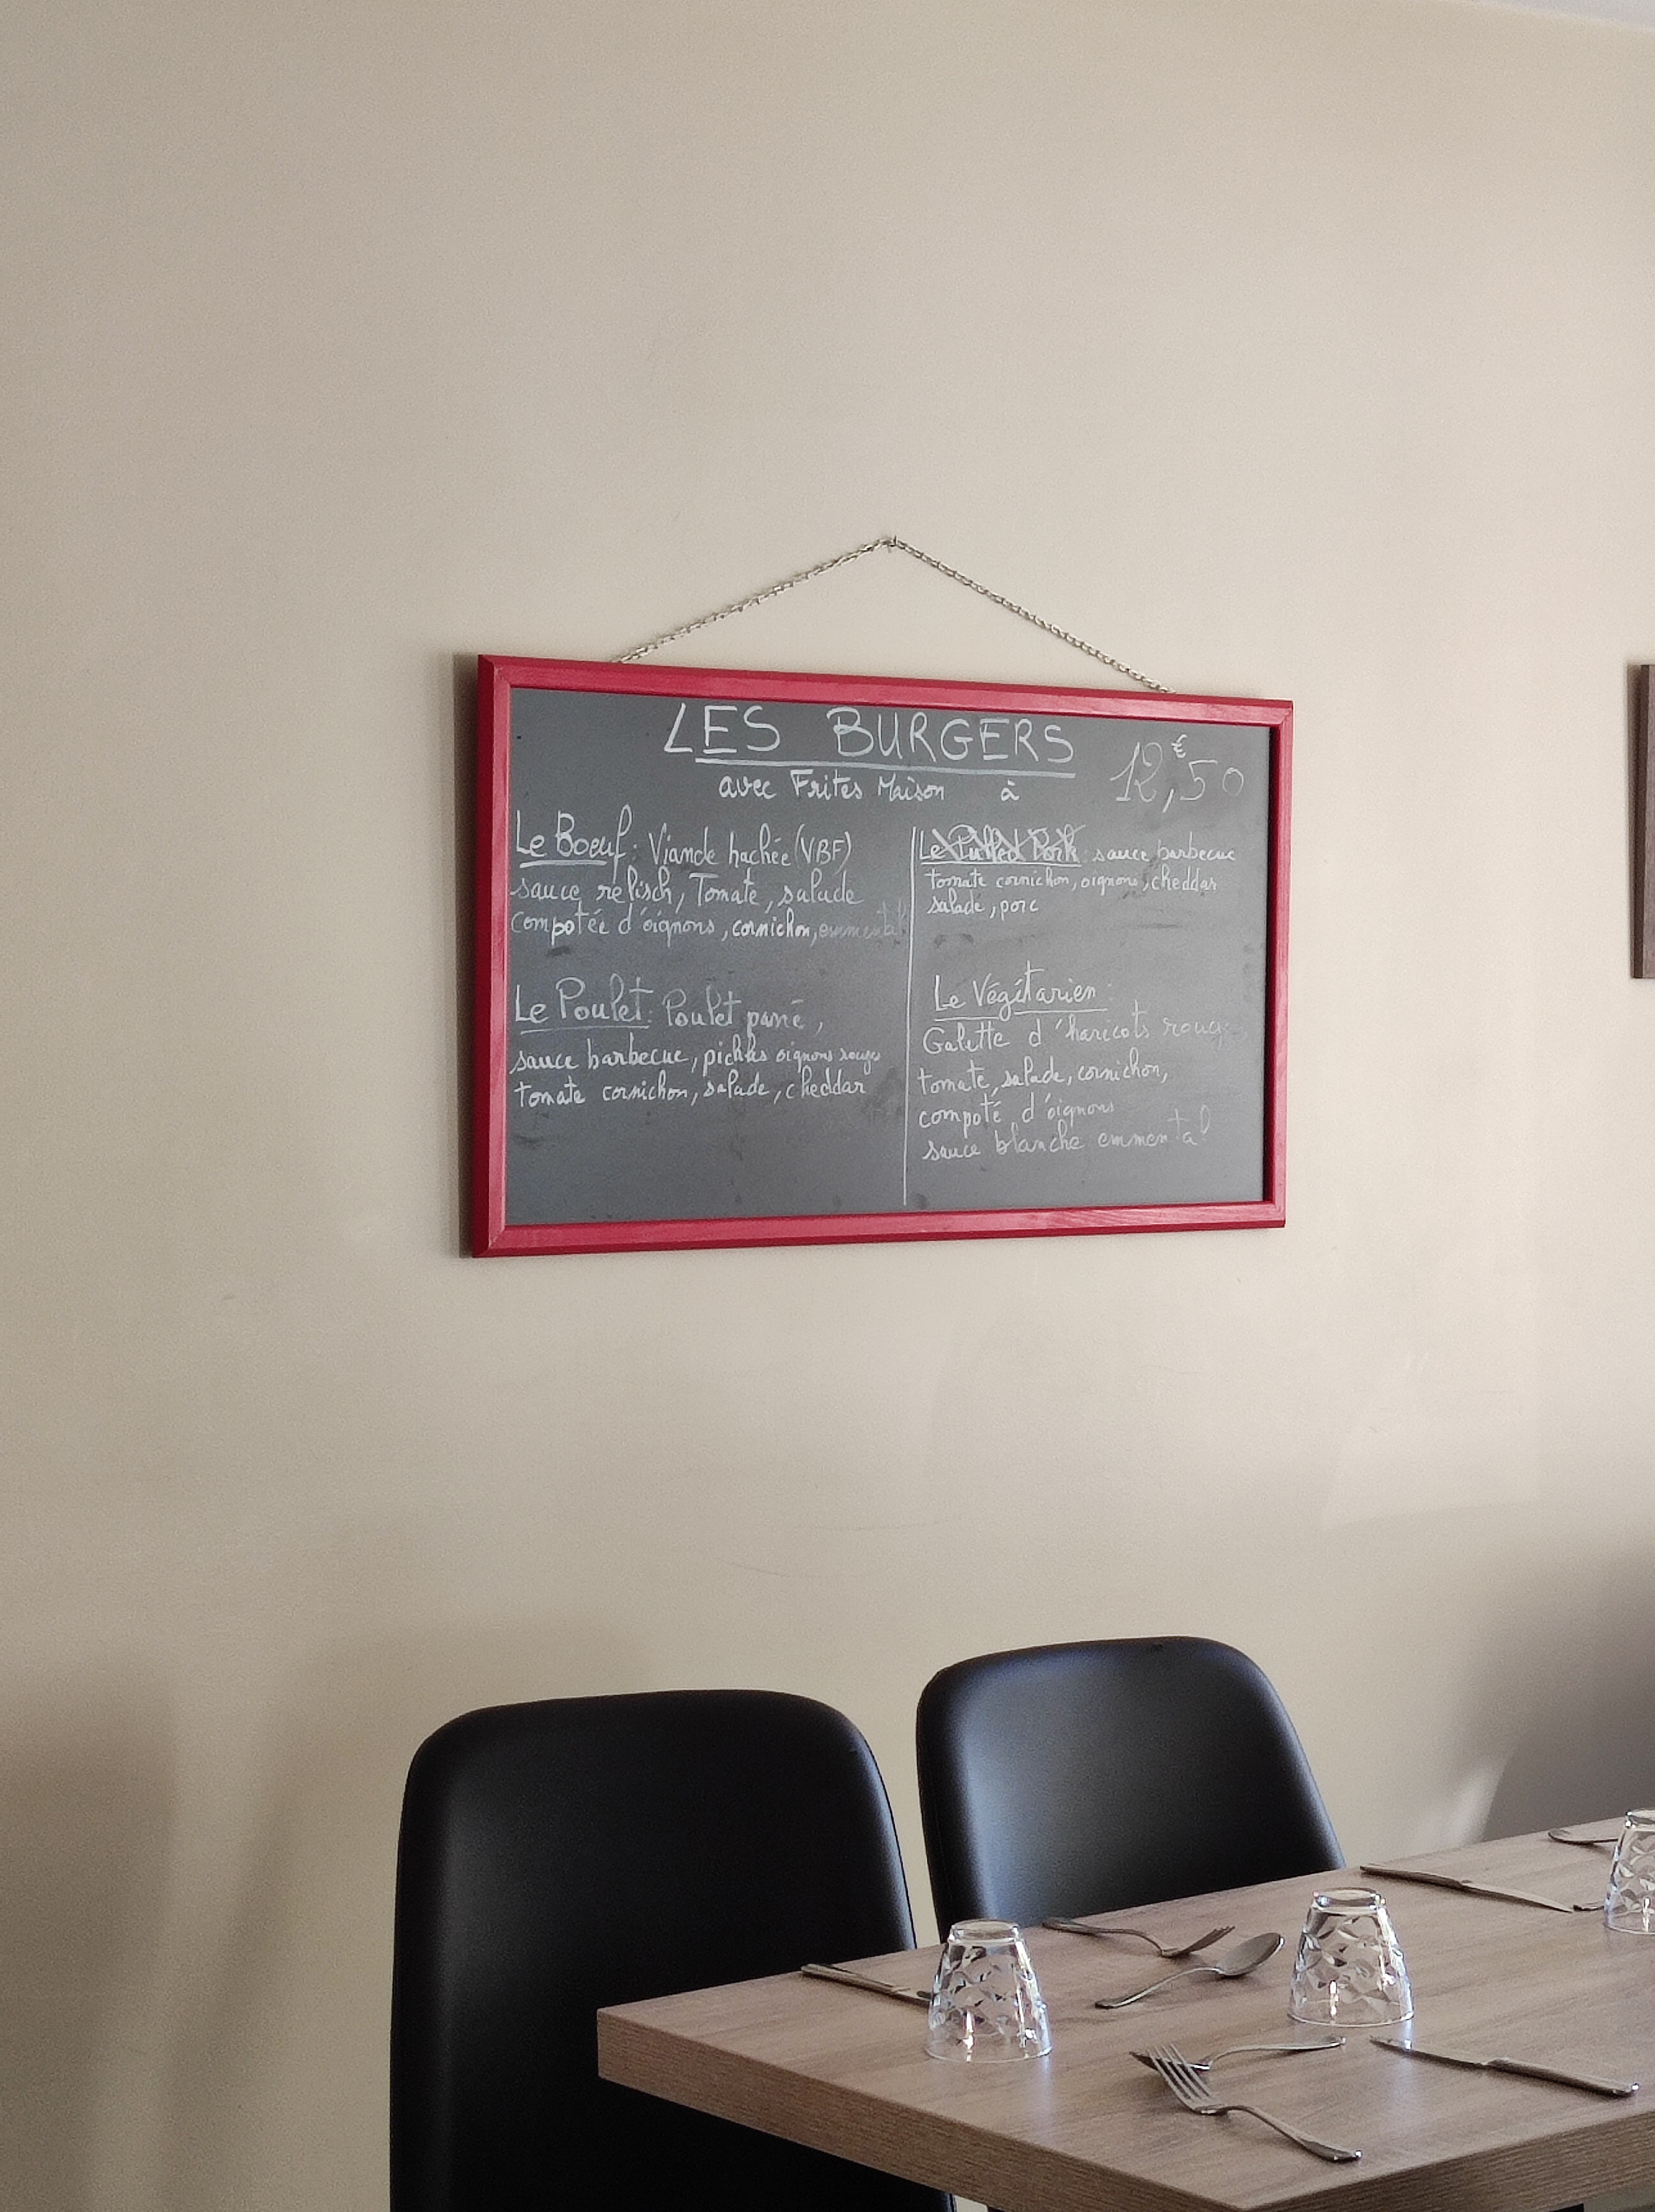 LES BURGERS
avec Frites Maison à 12,€50
Le Boeuf: Viande hachée (VBF)
sauce relisch, Tomate, salade
compotée d'oignons, cornichon, emmental
Le Poulet: Poulet pané,
sauce barbecue, pickles oignons rouges
tomate cornichon, salade, cheddar
Le Pulled Pork: sauce barbecue
tomate cornichon, oignons, cheddar
salade, porc
Le Végétarien:
Galette d'haricots rouges
tomate, salade, cornichon,
compoté d'oignons
sauce blanche emmental